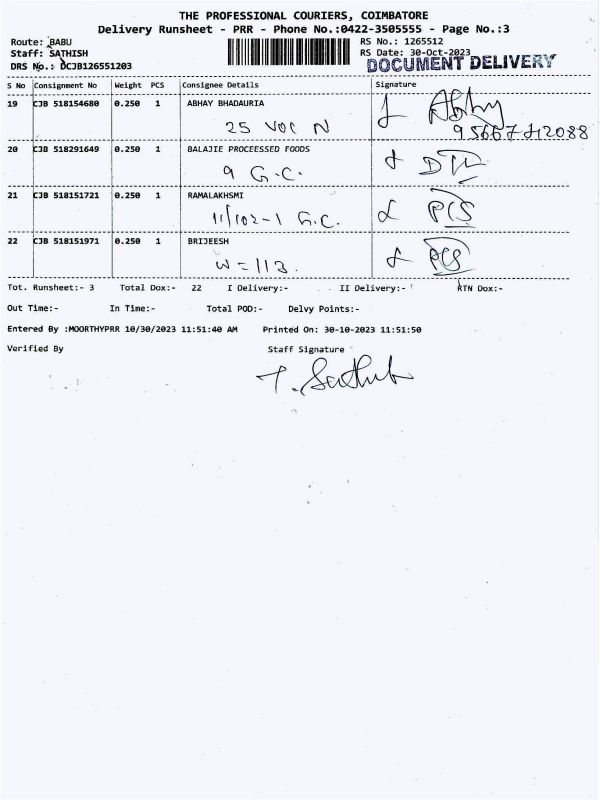 THE PROFESSIONAL COURIERS, COIMBATORE
Delivery Runsheet - PRR - Phone No.:0422-3505555 - Page No.:3
Route: BABU
RS No.: 1265512
Staff: SATHISH
RS Date: 30-Oct-2023
DRS No.: DCJB126551203
DOCUMENT DELIVERY
S No Consignment No Weight PCS Consignee Details Signature
19 CJB 518154680 0.250 1 ABHAY BHADAURIA
25 VOC N
20 CJB 518291649 0.250 1 BALAJIE PROCEESSED FOODS
9 G.C.
21 CJB 518151721 0.250 1 RAMALAKHSMI
11/102-1 G.C. PCS
22 CJB 518151971 0.250 1 BRIJEESH
W=113. PCS
Tot. Runsheet:- 3 Total Dox:- 22 I Delivery:- II Delivery:- RTN Dox:-
Out Time:- In Time:- Total POD:- Delvy Points:-
Entered By :MOORTHYPRR 10/30/2023 11:51:40 AM Printed On: 30-10-2023 11:51:50
Verified By Staff Signature
T. Sathish